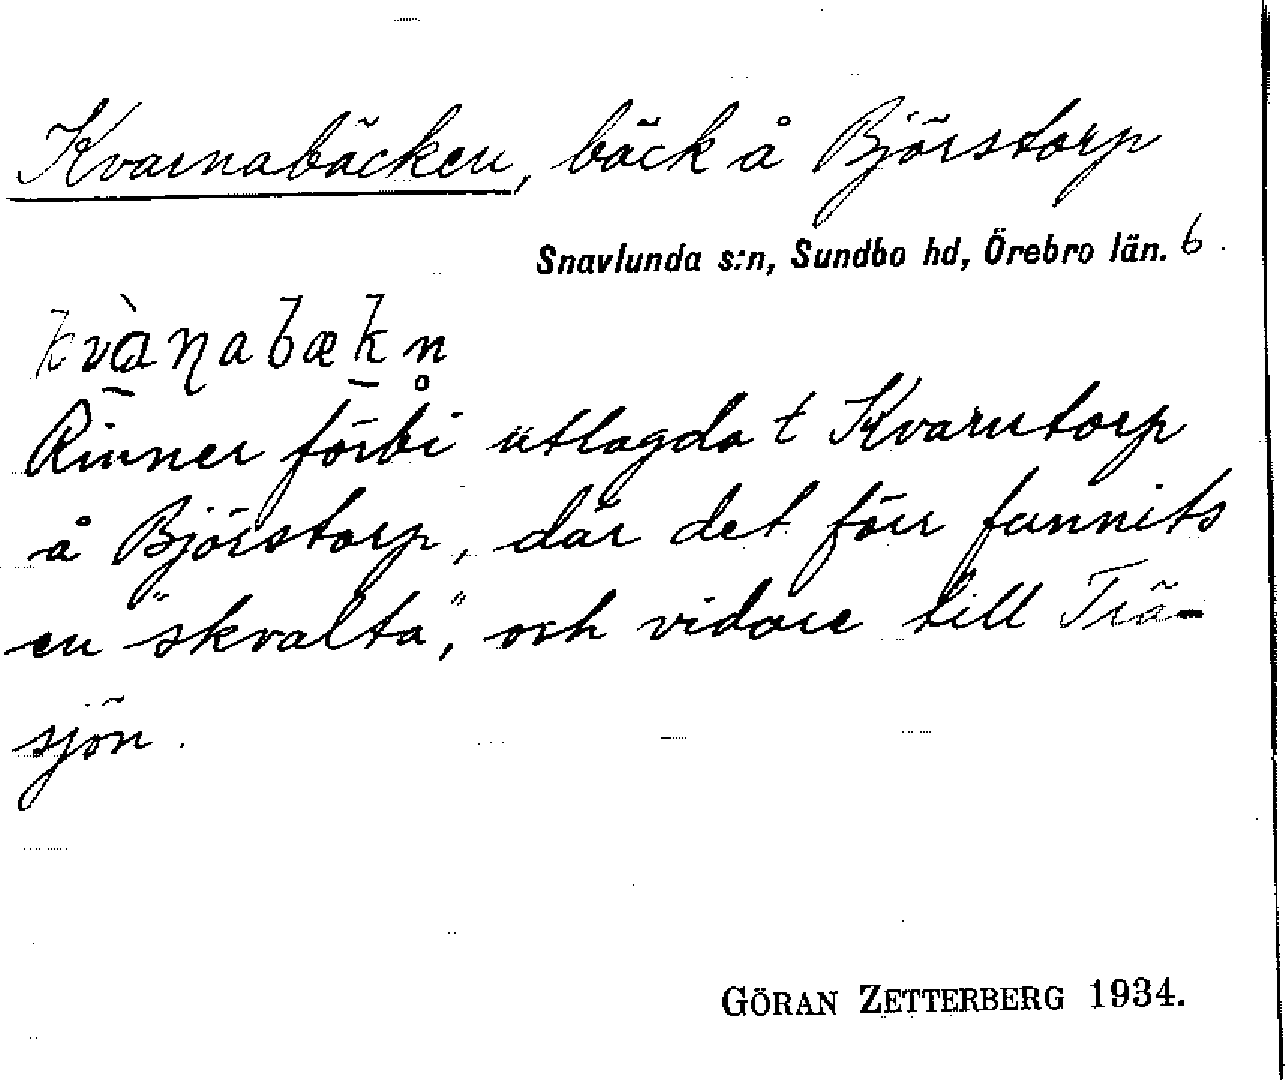 Kvarnabäcken, bäck å Björstorp
Snavlunda s:n, Sundbo hd, Örebro län. 6.
kvànabækn̥
Rinner förbi utlagda t Kvarntorp
å Björstorp, där det förr funnits
en "skvalta", och vidare till Trä-
sjön.
GÖRAN ZETTERBERG 1934.